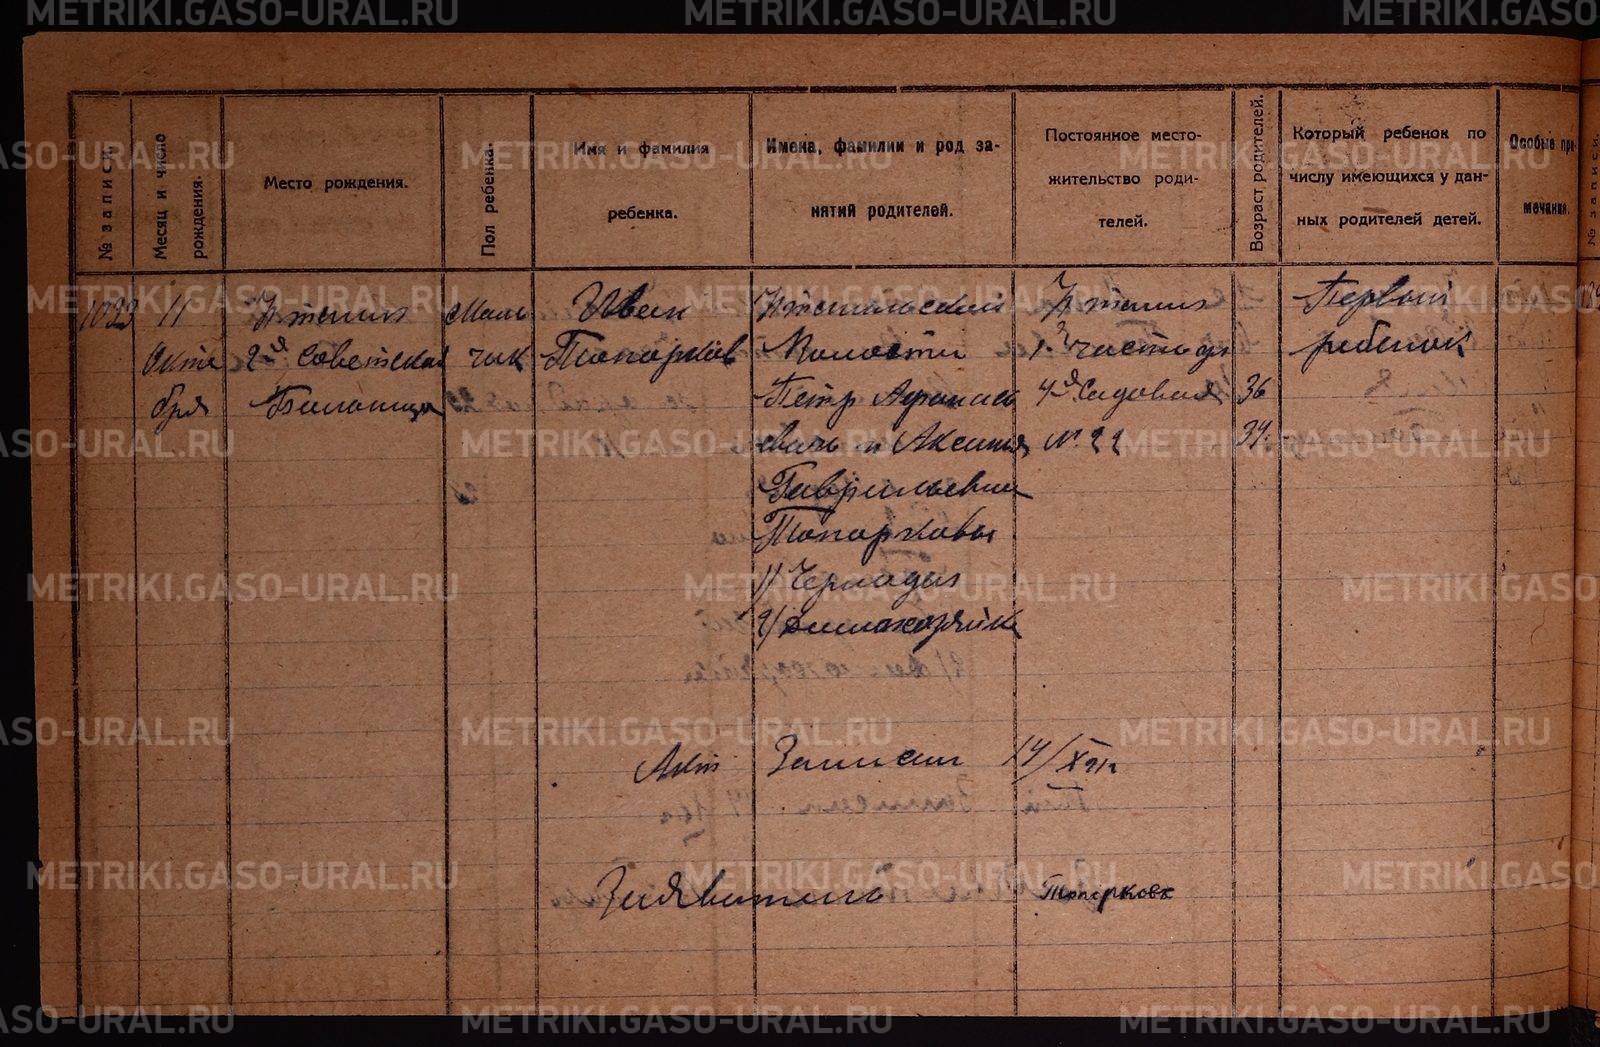 METRIKI.GASO-URAL.RU
№ записи.
Месяц и число рождения.
Место рождения.
Пол ребенка.
Имя и фамилия
ребенка.
Имена, фамилии и род за-
нятий родителей.
Постоянное место-
жительство роди-
телей.
Возраст родителей.
Который ребенок по
числу имеющихся у дан-
ных родителей детей.
Особые при-
мечания.
№ записи.
1023
11
Октя
бря
2я Советская
Больница
Маль
чик
Иван
Топорков
Волости
Петр Афанась
евичь и Аксинья
Гаврильевна
Топорковы
1)
2) Домохозяйка
1я часть
4я Садовая
№ 22
36
34.
Первый
ребенок
Акт Записан 14/X 21г
Заявитель
Топоркова